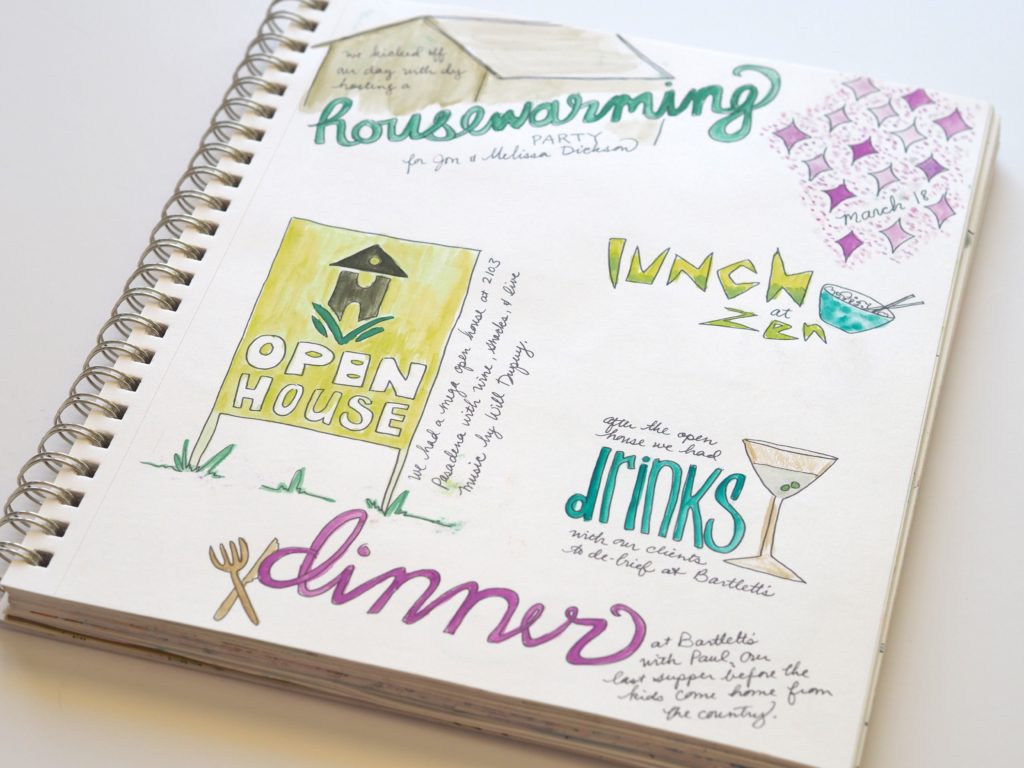 we kicked off
our day with by
hosting a
housewarming
PARTY
for Jon & Melissa Dickson
march 18
lunch
at
zen
OPEN
HOUSE
we had a mega open house at 2103
Pasadena with wine, snacks, & live
music by Will Dupuy.
after the open
house we had
drinks
with our clients
to de-brief at Bartlett's
dinner
at Bartlett's
with Paul, our
last supper before the
kids come home from
the country.